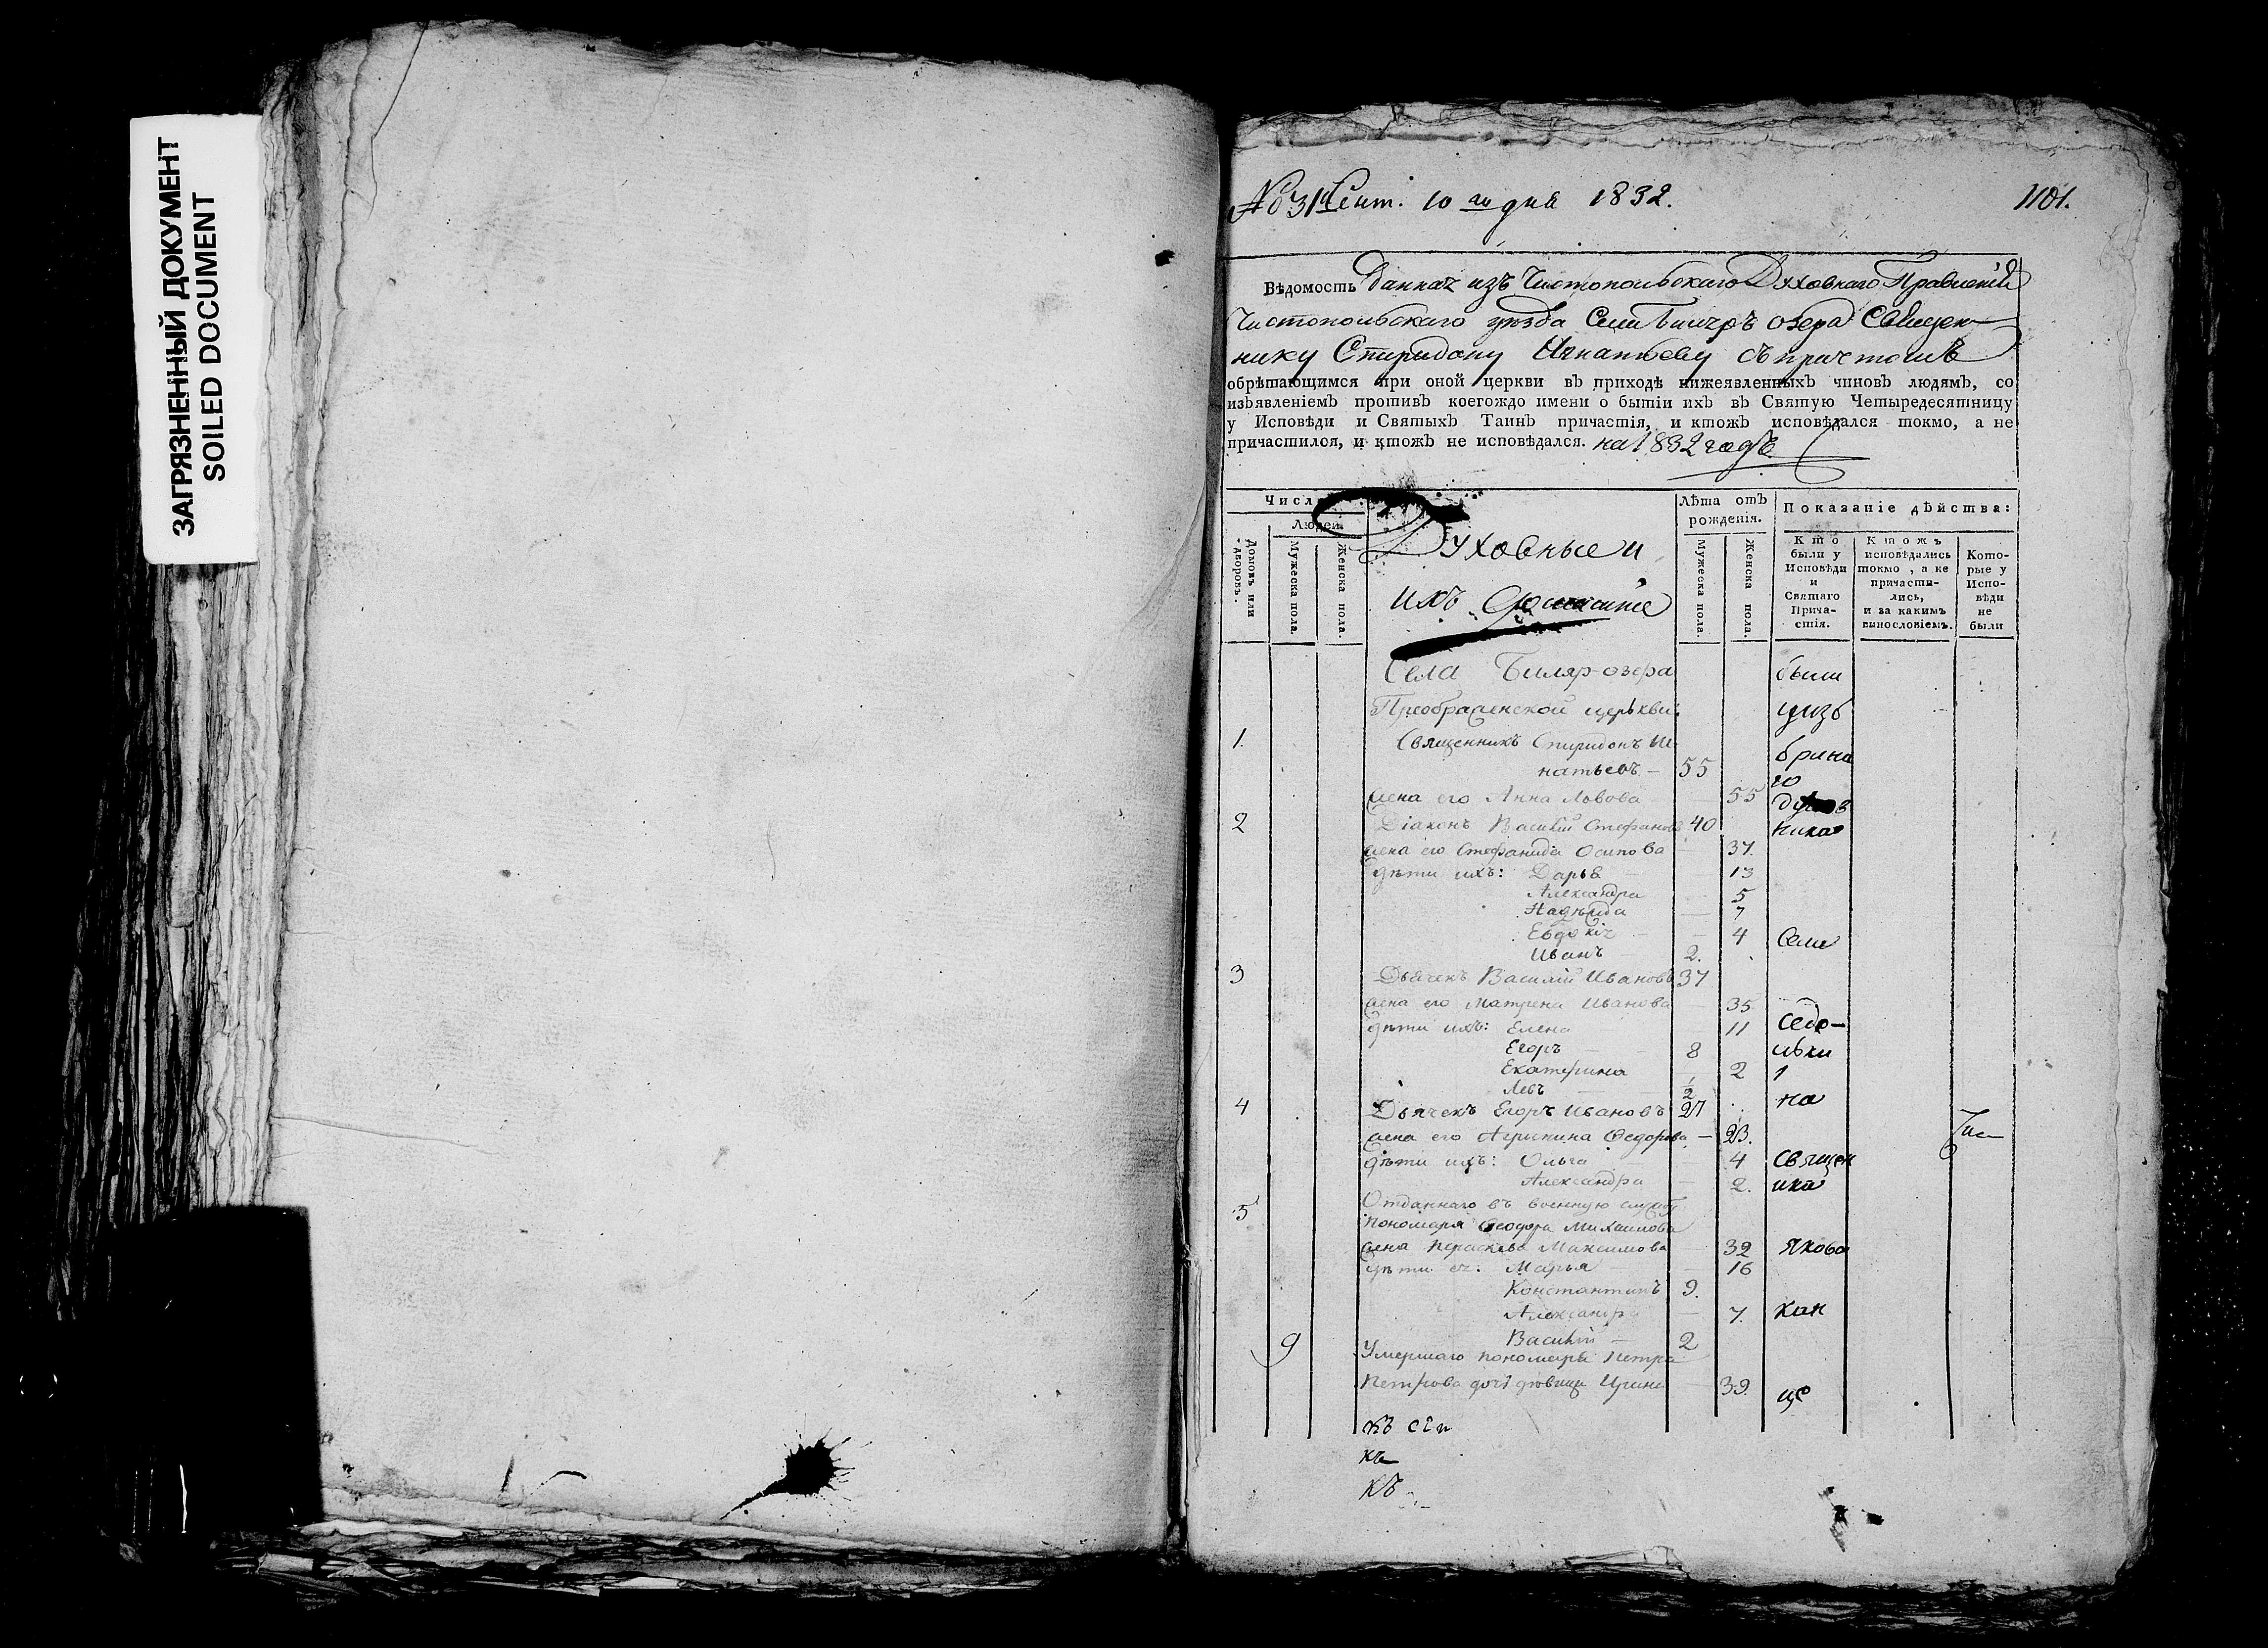 ЗАГРЯЗНЕННЫЙ ДОКУМЕНТ
SOILED DOCUMENT
№ 31 Сент. 10 го дня 1832.
1101.
Вѣдомость данная изъ Чистопольскаго Духовнаго Правленія
Чистопольскаго уезда Села Биляръ озера Священ-
нику Спиридону Игнатьеву съ причтомъ
обрѣтающимся при оной церкви въ приходѣ нижеявленныхъ чиновъ людямъ, со
изъявленіемъ противъ коегождо имени о бытіи ихъ въ Святую Четыредесятницу
у Исповѣди и Святыхъ Таинъ причастія, и ктожъ исповѣдался токмо, а не
причастился, и ктожъ не исповѣдался. на 1832 годъ
Числ
Людей.
Домовъ или дворовъ.
Мужеска пола.
Женска пола.
Духовные и
ихъ домашніе
Лѣта отъ рожденія.
Мужеска пола.
Женска пола.
Показаніе дѣйства:
Кто были у Исповѣди и Святаго Прича-стія.
Ктожъ исповѣдались токмо, а не причасти-лись, и за какимъ винословіемъ.
Кото-рые у Испо-вѣди не были
Села Биляр-озера были
Преображенской церькви.
1. Священникъ Спиридонъ Иг-
натьевъ — 55
жена его Анна Львова 55
2 Діаконъ Василій Стефановъ 40 ника
жена его Стефанида Осипова 37.
дѣти ихъ: Дарья 13
Александра 5
Надежда 7
Евдокія 4 Семе
Иванъ 2.
3 Дьячекъ Василій Ивановъ 37
жена его Матрена Иванова 35
дѣти ихъ: Елена 11
Егоръ 8
Екатерина 2
Левъ 1/2
4 Дьячекъ Егоръ Ивановъ 27 на
жена его Агрипина Федорова — 23.
дѣти ихъ: Ольга 4 Священ
Александра 2. ика
5 Отданнаго въ военную службу
пономаря Феодора Михаилова
жена Параскева Максимова 32 Якова
дѣти ея: Марья 16
Константинъ 9.
Александра 7. кан
9 Василій — 2
Умершаго пономаря Петра
Петрова дочь девица Ирина 39. це
къ
къ